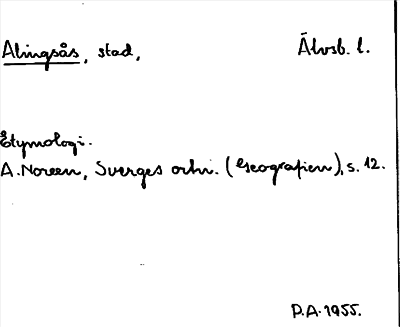 Alingsås, stad,
Älvsb. l.
Etymologi.
A. Noreen, Sverges ortn. (Geografien), s. 12.
P.A. 1955.